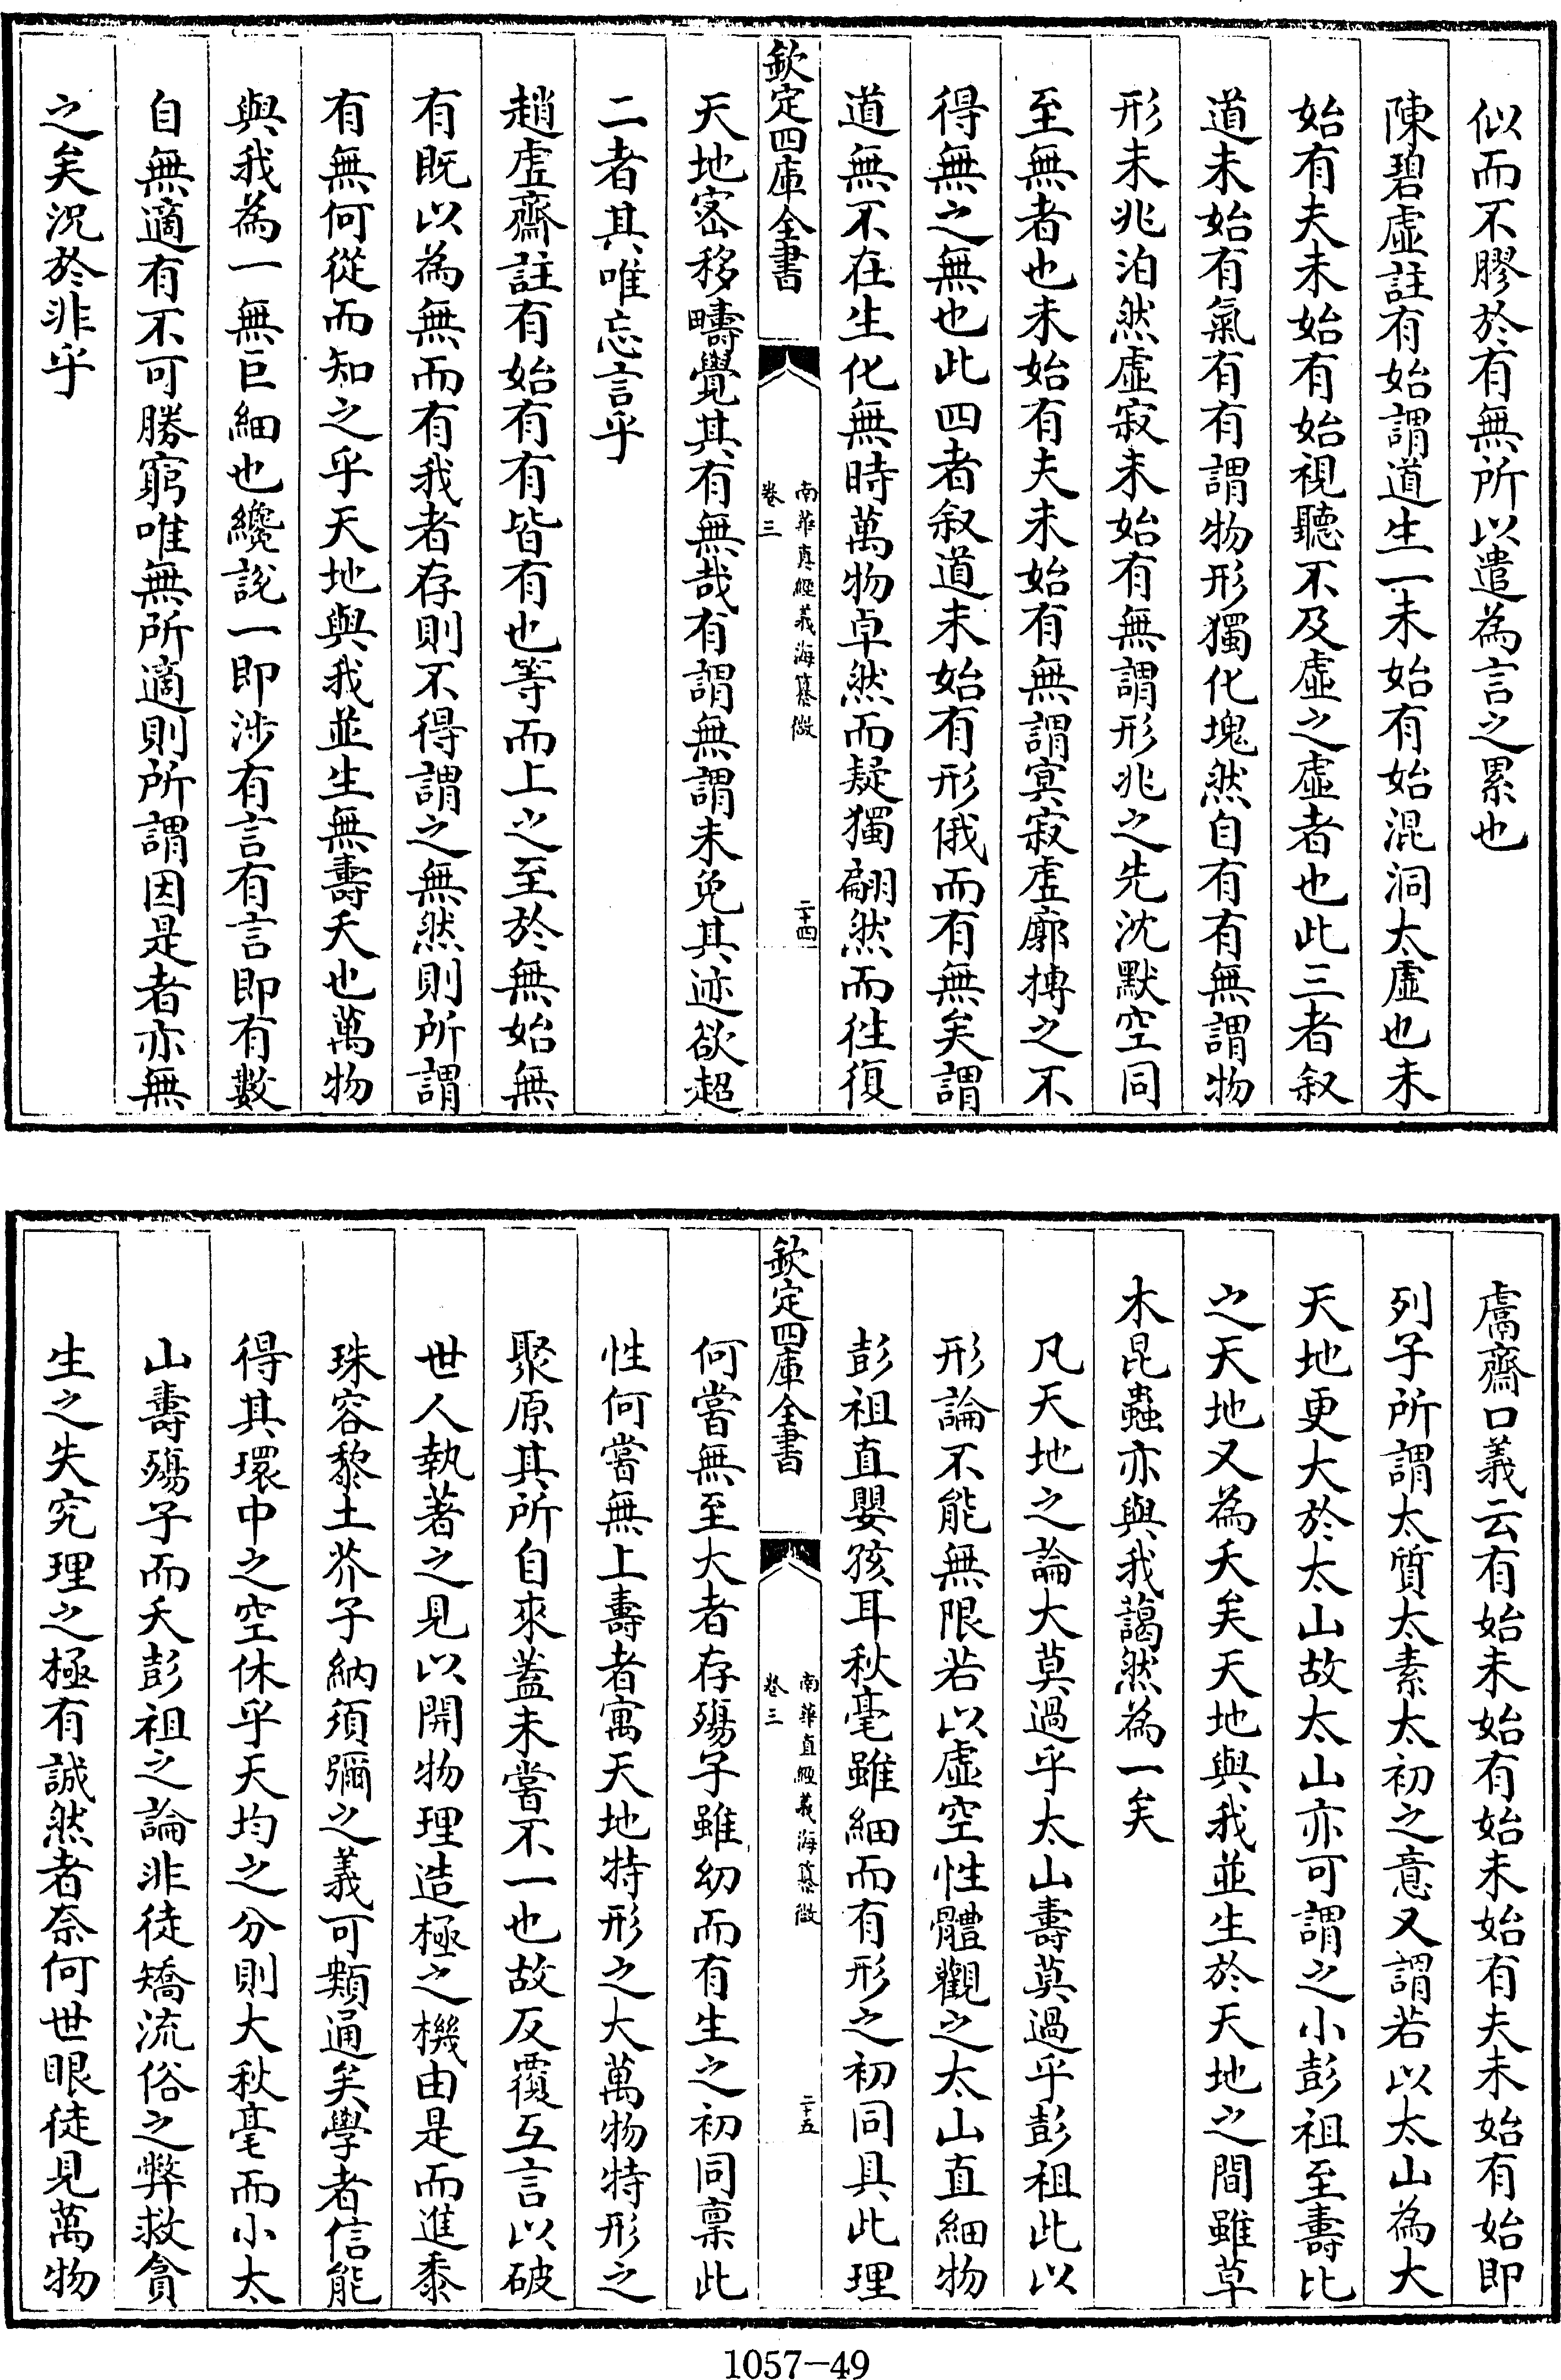 似而不膠於有無所以遣為言之累也
陳碧虛註有始謂道生一未始有始混洞太虛也未
始有夫未始有始視聽不及虛之虛者也此三者叙
道未始有氣有有謂物形獨化塊然自有有無謂物
形未兆泊然虛寂未始有無謂形兆之先沈默空同
至無者也未始有夫未始有無謂寞寂虛廓摶之不
得無之無也此四者叙道未始有形俄而有無矣謂
道無不在生化無時萬物卓然而疑獨翩然而徃復
欽定四庫全書
南華真經義海纂微
卷三
二十四
天地宻移疇覺其有無哉有謂無謂未免其迹欲超
二者其唯忘言乎
趙虛齋註有始有有皆有也等而上之至於無始無
有既以為無而有我者存則不得謂之無然則所謂
有無何從而知之乎天地與我並生無壽夭也萬物
與我為一無巨細也纔說一即涉有言有言即有數
自無適有不可勝窮唯無所適則所謂因是者亦無
之矣況於非乎
鬳齋口義云有始未始有始未始有夫未始有始即
列子所謂太質太素太初之意又謂若以太山為大
天地更大於太山故太山亦可謂之小彭祖至壽比
之天地又為夭矣天地與我並生於天地之間雖草
木昆蟲亦與我藹然為一矣
凡天地之論大莫過乎太山壽莫過乎彭祖此以
形論不能無限若以虛空性體觀之太山直細物
彭祖直嬰孩耳秋毫雖細而有形之初同具此理
欽定四庫全書
南華真經義海纂微
卷三
二十五
何嘗無至大者存殤子雖幼而有生之初同禀此
性何嘗無上壽者寓天地特形之大萬物特形之
聚原其所自來蓋未嘗不一也故反覆互言以破
世人執著之見以開物理造極之機由是而進黍
珠容黎土芥子納須彌之義可類通矣學者信能
得其環中之空休乎天均之分則大秋毫而小太
山壽殤子而夭彭祖之論非徒矯流俗之弊救貪
生之失究理之極有誠然者奈何世眼徒見萬物
1057-49